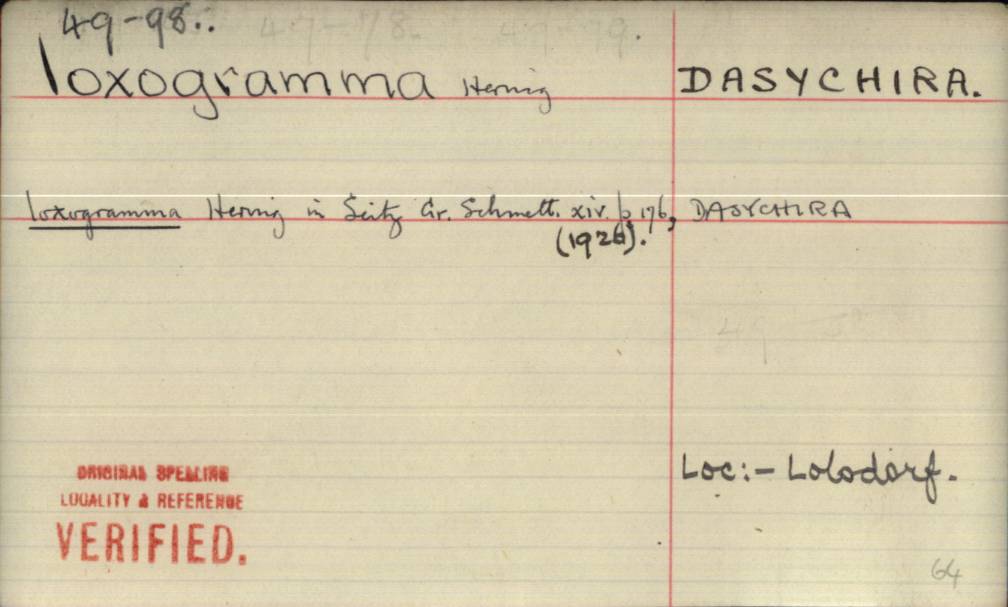 49-98.
loxogramma Hering DASYCHIRA.
loxogramma Hering in Seitz Gr. Schmett. xiv. p. 176, DASYCHIRA
(1926).
Loc:- Lolodorf.
ORIGINAL SPELLING
LOCALITY & REFERENCE
VERIFIED.
64